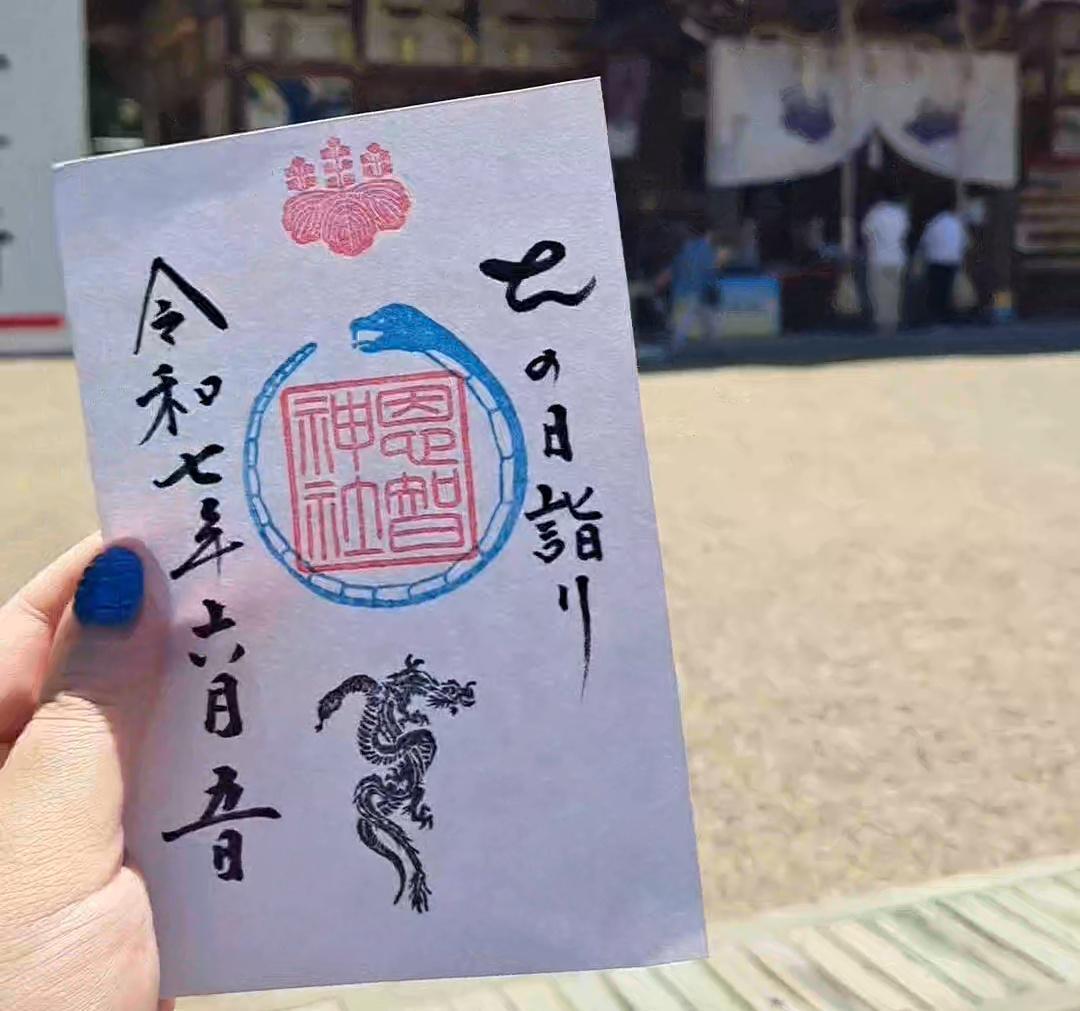 巳の日詣り
恩智
神社
令和七年六月五日